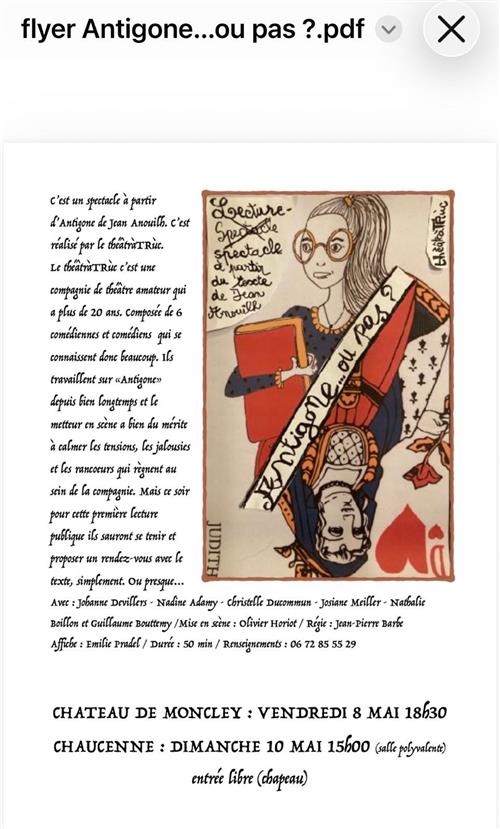 flyer Antigone...ou pas ?.pdf
C'est un spectacle à partir
d'Antigone de Jean Anouilh. C'est
réalisé par le théâtr'àTRùc.
Le théâtr'àTRùc c'est une
compagnie de théâtre amateur qui
a plus de 20 ans. Composée de 6
comédiennes et comédiens qui se
connaissent donc beaucoup. Ils
travaillent sur «Antigone»
depuis bien longtemps et le
metteur en scène a bien du mérite
à calmer les tensions, les jalousies
et les rancoeurs qui règnent au
sein de la compagnie. Mais ce soir
pour cette première lecture
publique ils sauront se tenir et
proposer un rendez-vous avec le
texte, simplement. Ou presque...
Lecture-
Spectacle
spectacle
à partir
du texte
de Jean
Anouilh
théâtr'àTRùc
Antigone...ou pas?
JUDITH
D
Avec : Johanne Devillers - Nadine Adamy - Christelle Ducommun - Josiane Meiller - Nathalie
Boillon et Guillaume Bouttemy /Mise en scène : Olivier Horiot / Régie : Jean-Pierre Barbe
Affiche : Emilie Pradel / Durée : 50 min / Renseignements : 06 72 85 55 29
CHATEAU DE MONCLEY : VENDREDI 8 MAI 18h30
CHAUCENNE : DIMANCHE 10 MAI 15h00 (salle polyvalente)
entrée libre (chapeau)